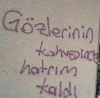 Gözlerinin
kahvesinde
hatrım
kaldı